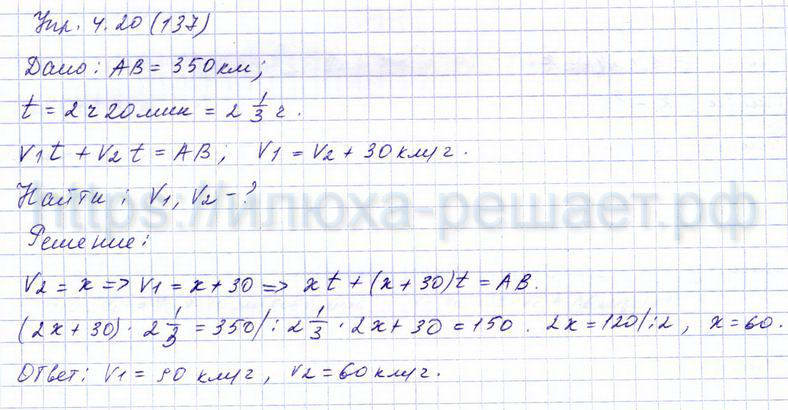 Упр. 4.20 (137)
Дано: AB = 350 км;
t = 2 ч 20 мин = 2 1/3 ч.
V1t + V2t = AB; V1 = V2 + 30 км/ч.
Найти: V1, V2 - ?
https://илюха-решает.рф
Решение:
V2 = x => V1 = x + 30 => xt + (x + 30)t = AB.
(2x + 30) · 2 1/3 = 350 | : 2 1/3 · 2x + 30 = 150. 2x = 120 | : 2, x = 60.
Ответ: V1 = 90 км/ч, V2 = 60 км/ч.